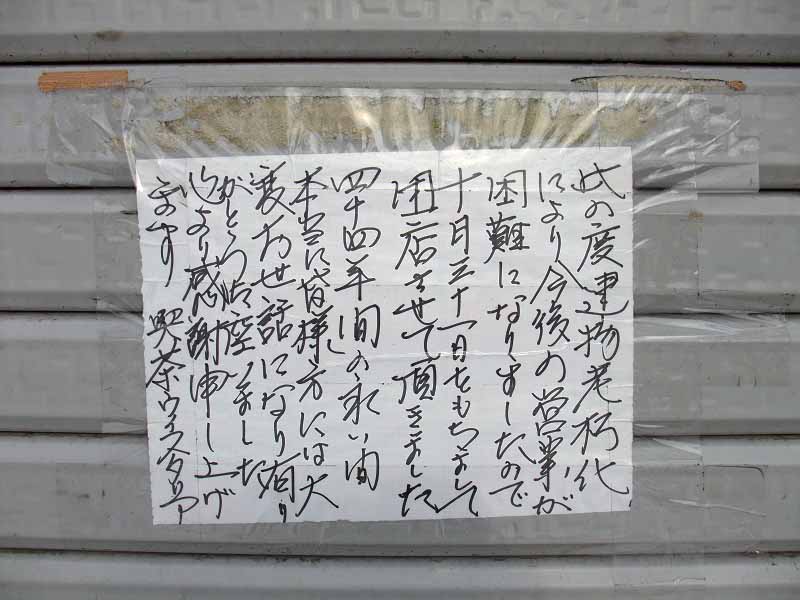 此の度建物老朽化
により今後の営業が
困難になりましたので
十月三十一日をもちまして
閉店させて頂きました
四十四年間の永い間
本当に皆様方には大
変お世話になり有り
がとう御座いました
心より感謝申し上げ
ます 喫茶ウエスタリア